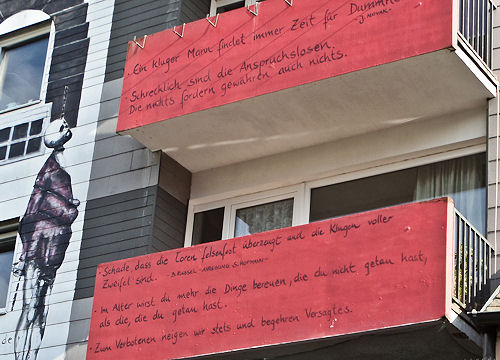 · Ein kluger Mann findet immer Zeit für Dummhe
J. NOVAK.
· Schrecklich sind die Anspruchslosen.
Die nichts fordern, gewähren auch nichts.
- Schade, dass die Toren felsenfest überzeugt und die Klugen voller
Zweifel sind. - B. RUSSEL - ANREGUNG S. HOFMANN -
- Im Alter wirst du mehr die Dinge bereuen, die du nicht getan hast,
als die, die du getan hast.
- Zum Verbotenen neigen wir stets und begehren Versagtes.
de